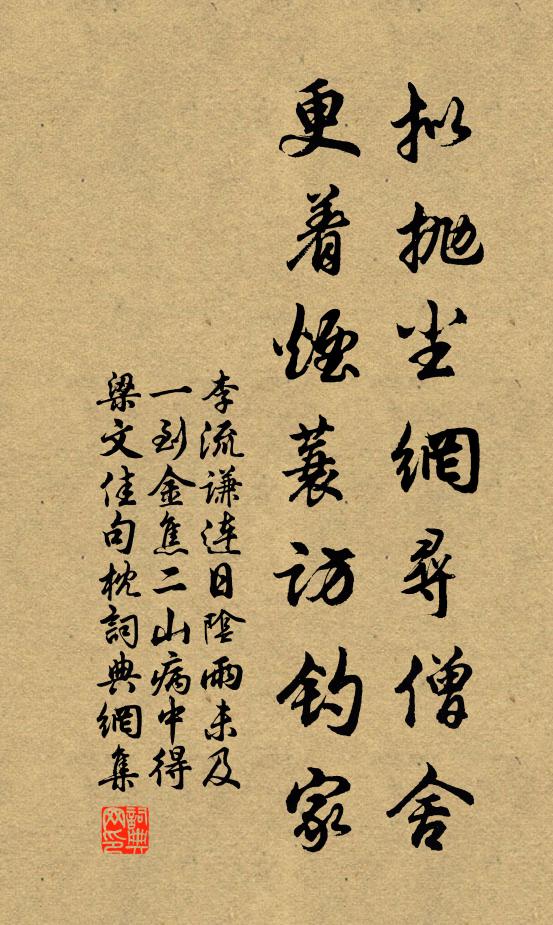 拟抛尘網尋僧舍
更着煙蓑访钓家
李流谦连日陰雨未及
一到金焦二山病中得
梁文佳句枕詞典網集
詞典网印